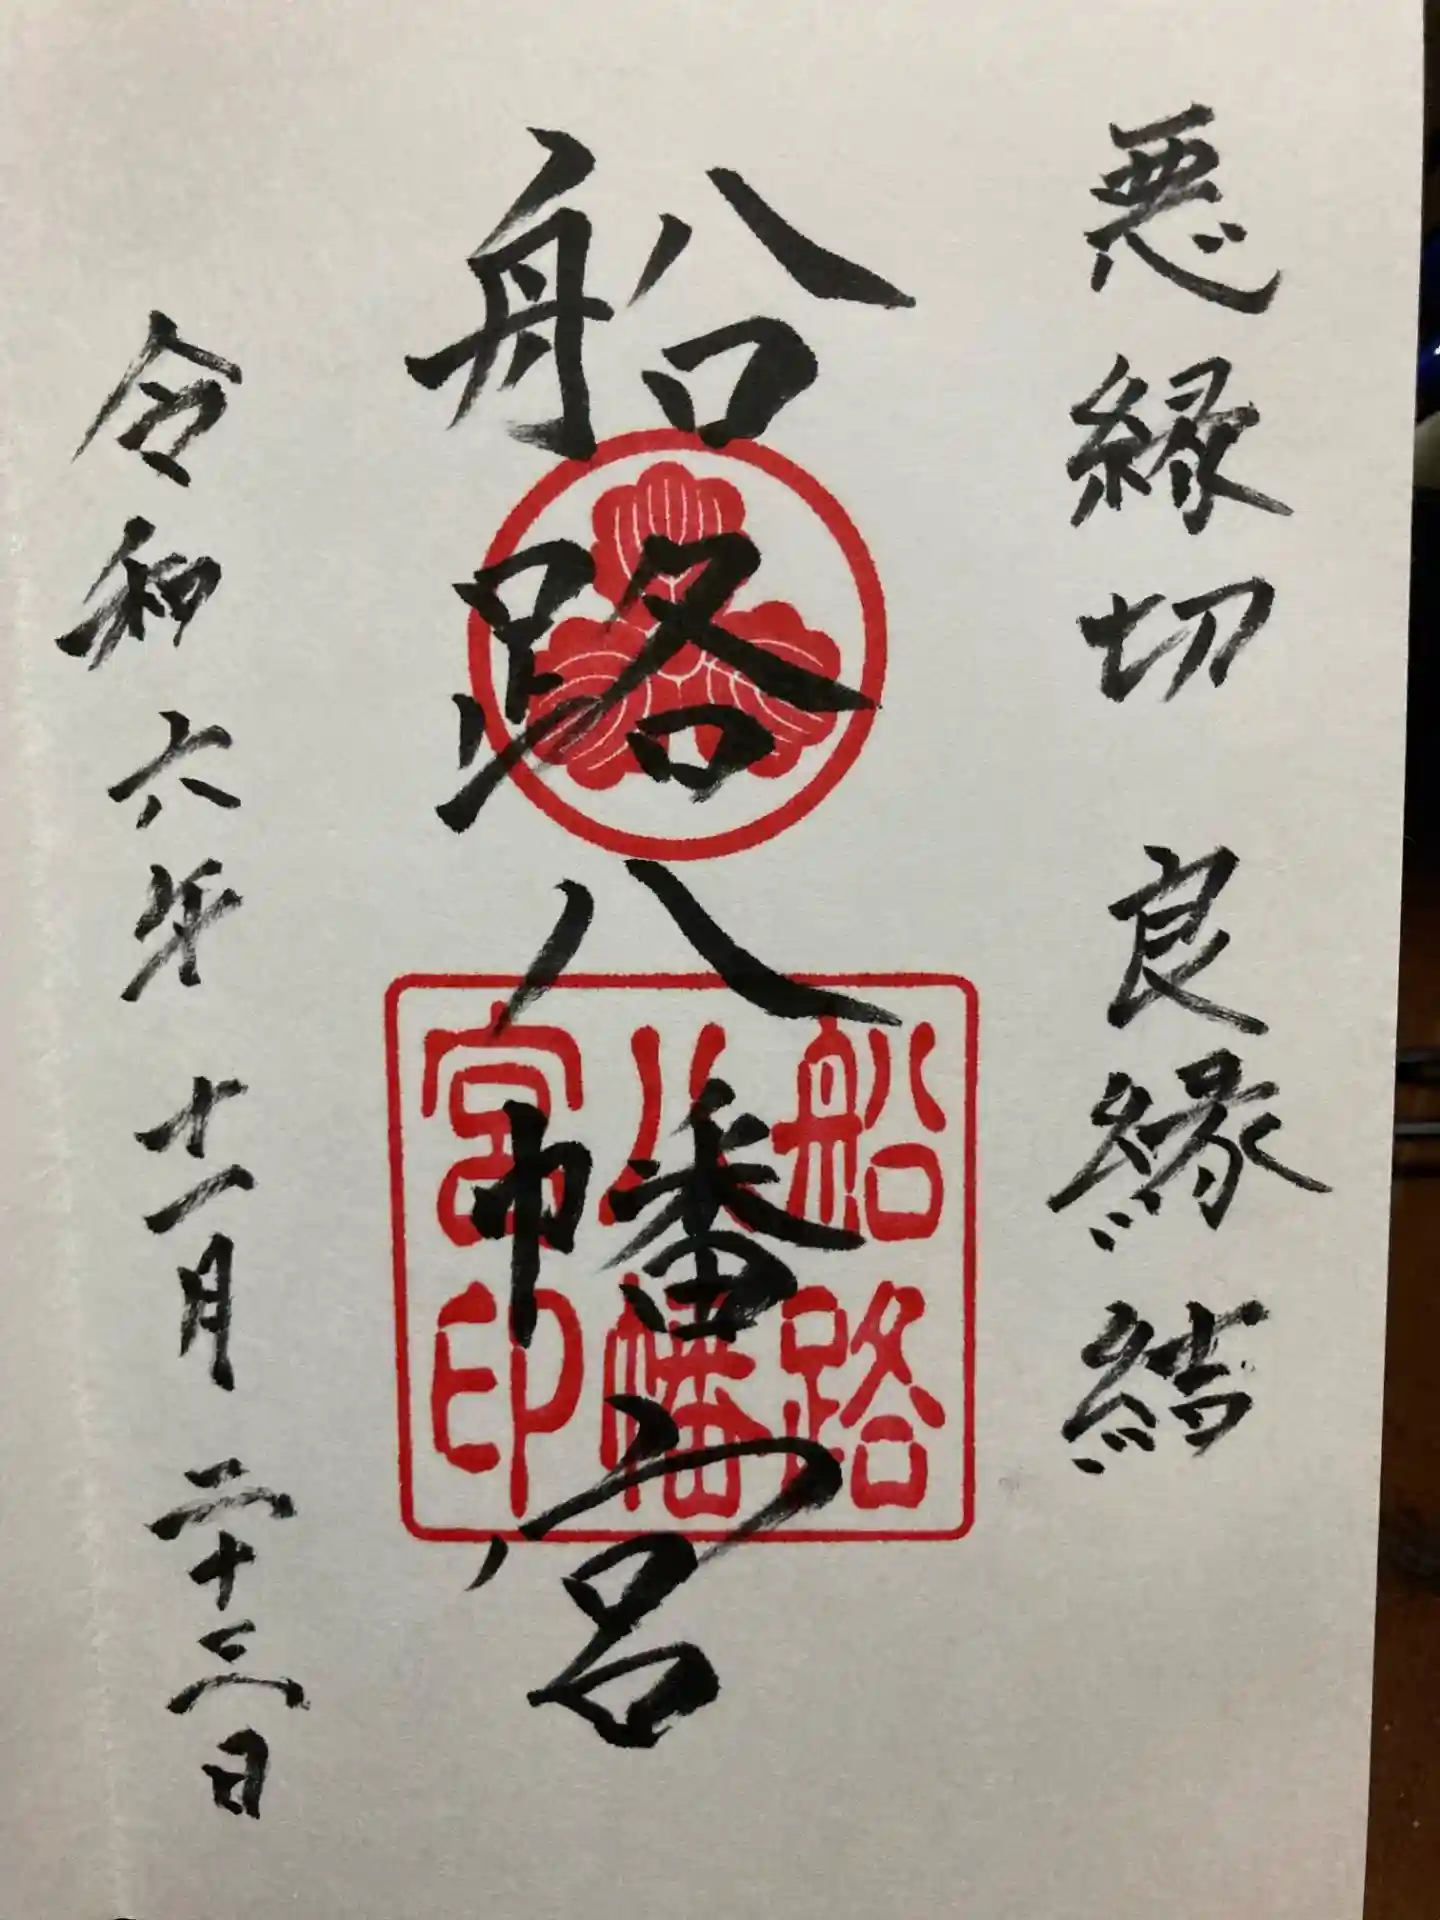 悪縁切 良縁結
船路八幡宮
船路
八幡
宮印
令和六年 十一月 二十三日